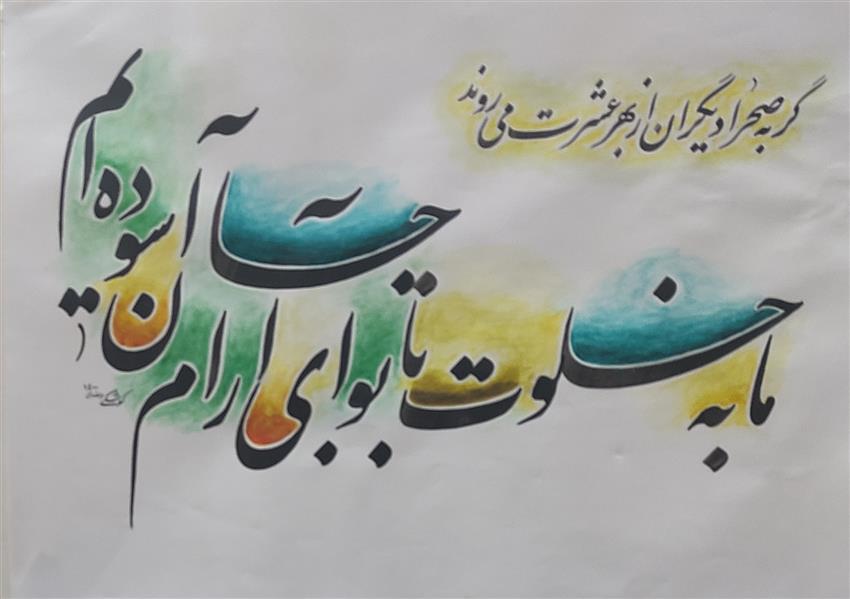 گر به صحرا دیگران از بهر عشرت می روند
ما به خلوت با تو ای آرام جان آسوده ایم